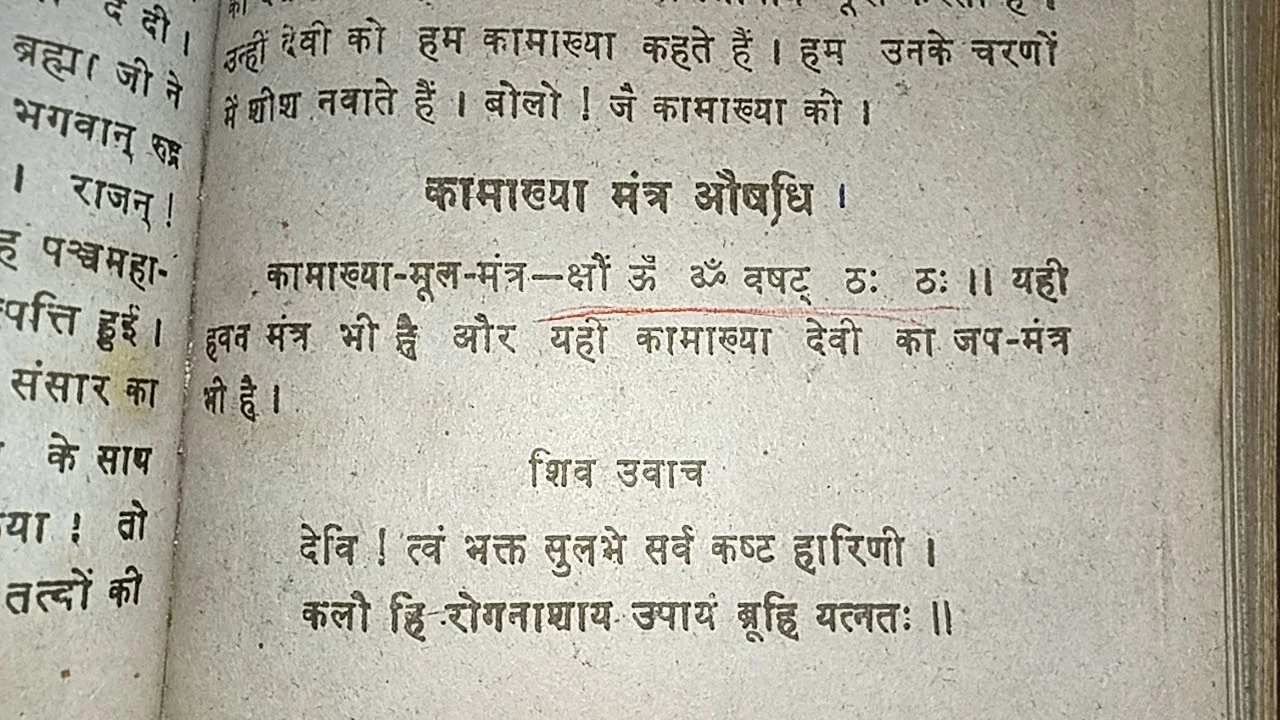 दी ।
ब्रह्मा जी ने
भगवान् रुद्र
। राजन् !
पञ्चमहा-
पत्ति हुई ।
संसार का
के साथ
या ! तो
तत्वों की
उन्हीं देवी को हम कामाख्या कहते हैं । हम उनके चरणों
में शीश नवाते हैं । बोलो ! जै कामाख्या की ।
कामाख्या मंत्र औषधि ।
कामाख्या-मूल-मंत्र—क्षौं ऊँ ॐ वषट् ठः ठः ॥ यही
हवन मंत्र भी है और यही कामाख्या देवी का जप-मंत्र
भी है ।
शिव उवाच
देवि ! त्वं भक्त सुलभे सर्व कष्ट हारिणी ।
कलौ हि रोगनाशाय उपायं ब्रूहि यत्नतः ॥